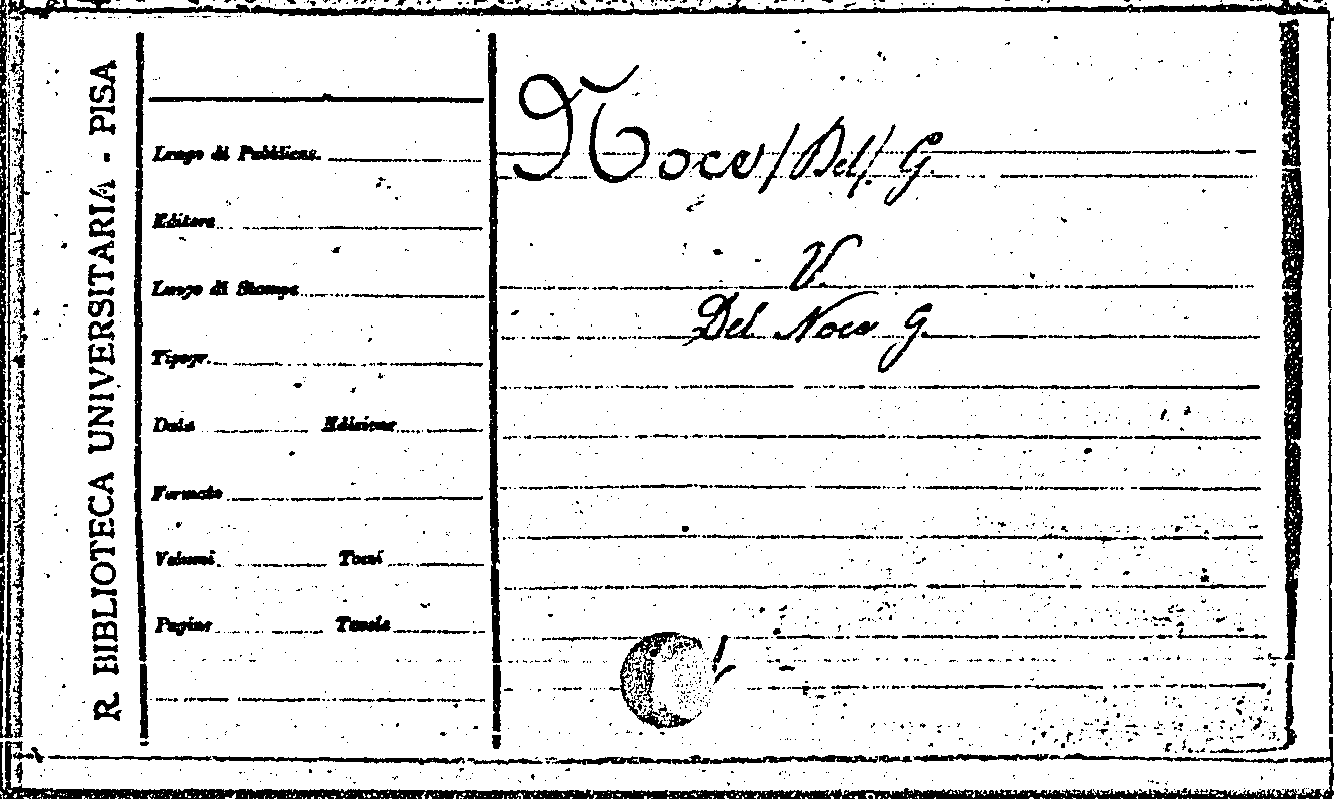 R. BIBLIOTECA UNIVERSITARIA - PISA
Luogo di Pubblicaz.
Editore
Luogo di Stampa
Tipogr.
Data Edizione
Formato
Volumi Tomi
Pagine Tavole
Noce/Del/. G.
V.
Del Noce G.